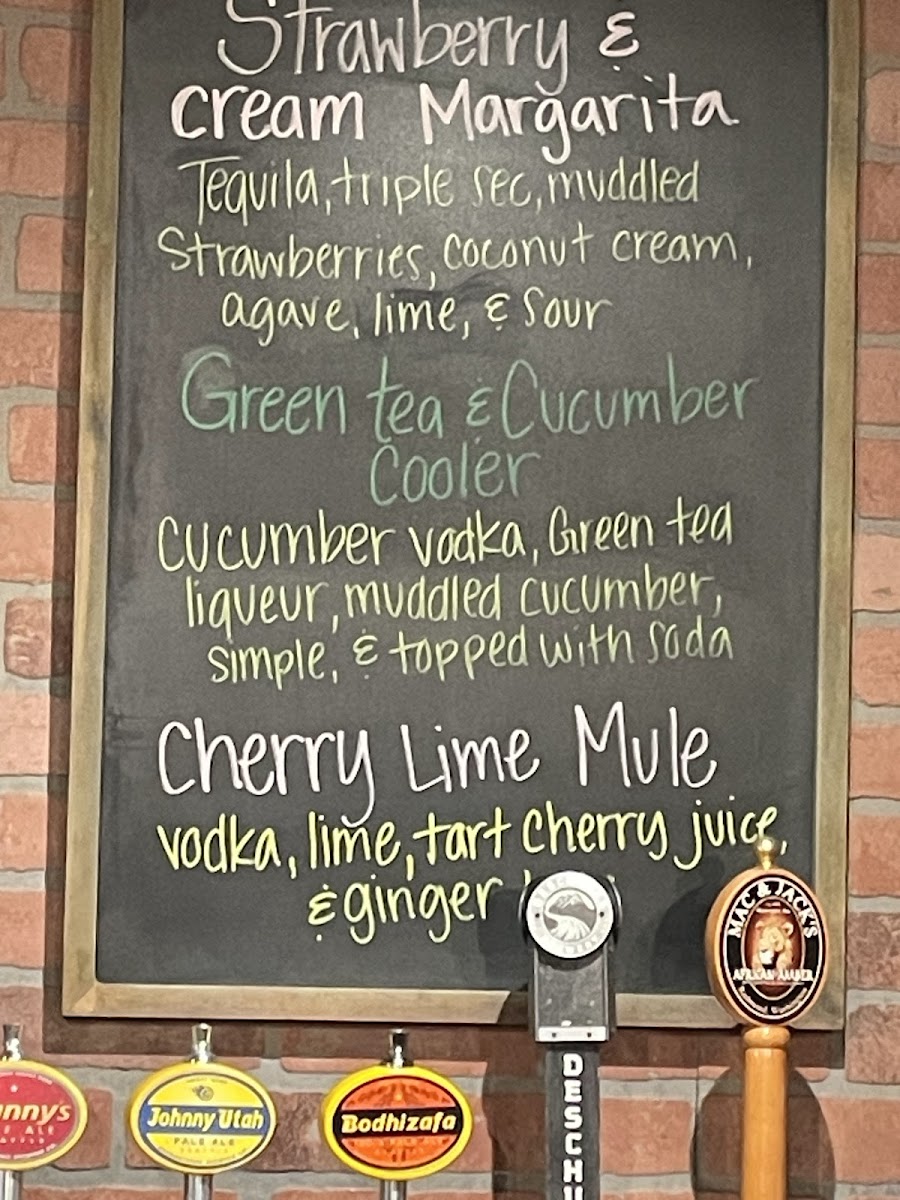 Strawberry &
cream Margarita
Tequila, triple sec, muddled
Strawberries, coconut cream,
agave, lime, & Sour
Green tea & Cucumber
Cooler
Cucumber vodka, Green tea
liqueur, muddled cucumber,
simple, & topped with soda
Cherry Lime Mule
vodka, lime, tart Cherry juice,
& ginger
MAC & JACK'S
AFRICAN AMBER
Redmond Washington
Johnny Utah
PALE ALE
Bodhizafa
DESCHU
nny's
ALE